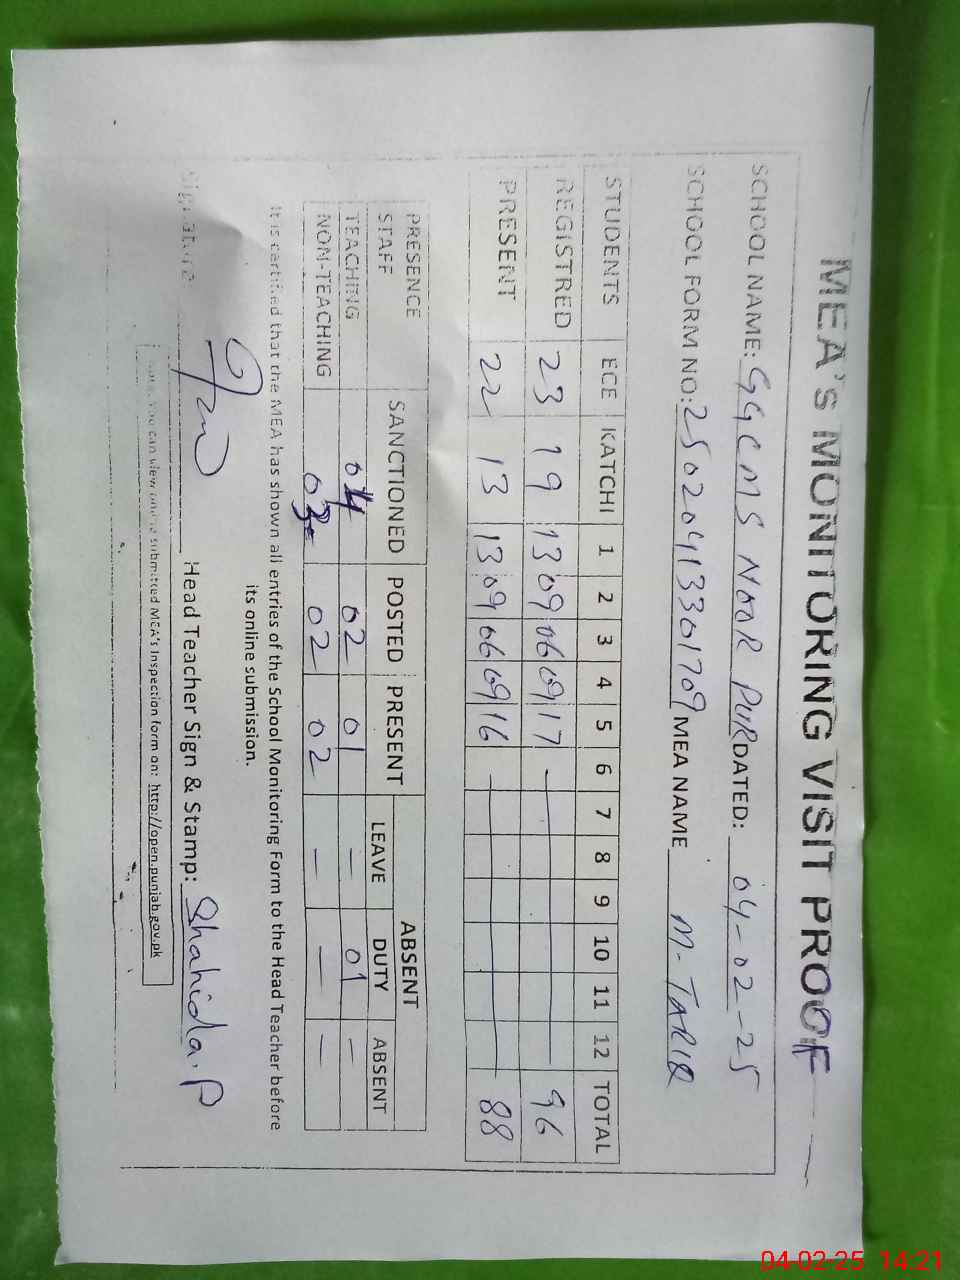 MEA's MONITORING VISIT PROOF
SCHOOL NAME: GGCMS NOOR PUR DATED: 04-02-25
SCHOOL FORM NO: 25020413301709 MEA NAME M-TARIQ
STUDENTS ECE KATCHI 1 2 3 4 5 6 7 8 9 10 11 12 TOTAL
REGISTRED 23 19 13 09 06 09 17 — 96
PRESENT 22 13 13 09 06 09 16 — 88
PRESENCE STAFF SANCTIONED POSTED PRESENT ABSENT
LEAVE DUTY ABSENT
TEACHING 04 02 01 — 01 —
NON-TEACHING 02 02 — — —
It is certified that the MEA has shown all entries of the School Monitoring Form to the Head Teacher before
its online submission.
Signature Head Teacher Sign & Stamp: Shahida.P
You can view online submitted MEA's Inspection form on: http://open.punjab.gov.pk
04-02-25 14:21